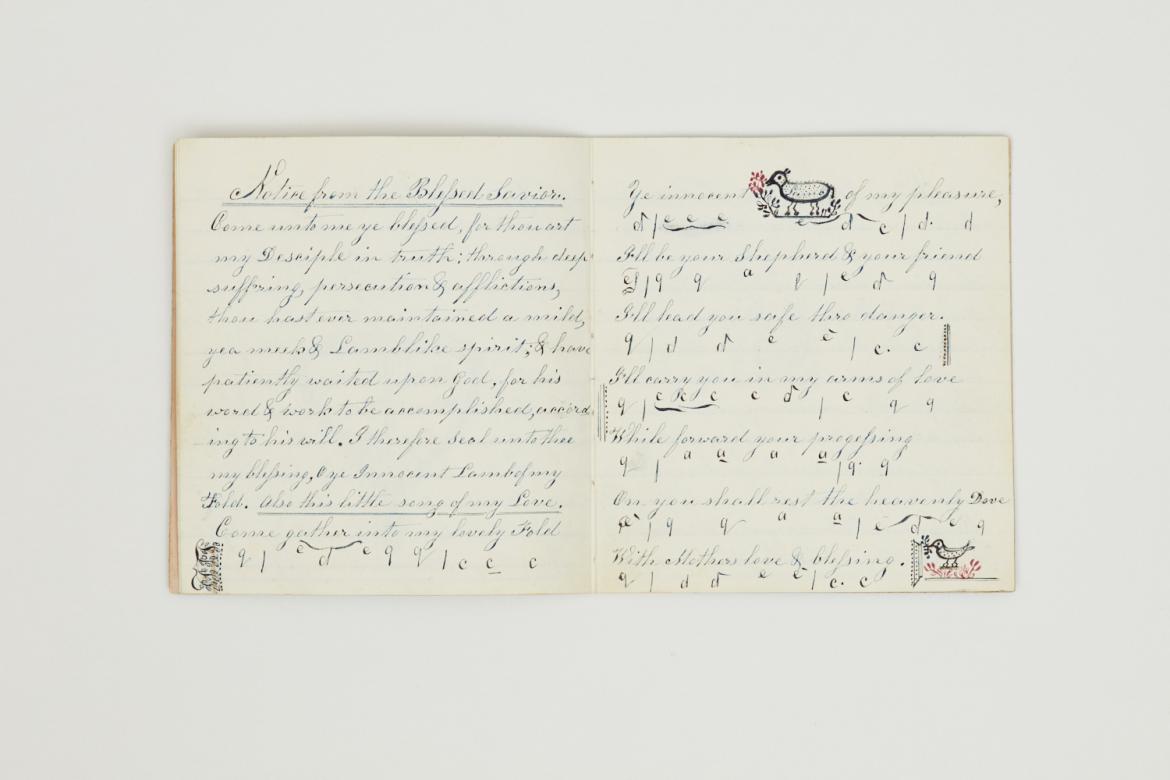 Notice from the Blessed Savior.
Come unto me ye blessed, for thou art
my Desciple in truth; through deep
suffring, persecution & afflictions,
thou hast ever maintained a mild,
yea meek & Lamblike spirit; & have
patiently waited upon God, for his
word & work to be accomplished, accord
ing to his will. I therefore seal unto thee
my blessing, O ye Innocent Lamb of my
Fold. Also this little song of my Love.
Come gather into my lovely Fold
q | c d c q q | c c c
Ye innocent of my pleasure,
d | c c c c d c | d d
I'll be your Shepherd & your friend
q q a q | c d q
I'll lead you safe thro danger.
q | d d c c | c c
I'll carry you in my arms of love
q | c c c c d | c q q
While forward your progessing
q | a a a a | q q
On you shall rest the heavenly Dove
c | q q a a | c d c q
With Mothers love & blessing.
q | d d c c | c c